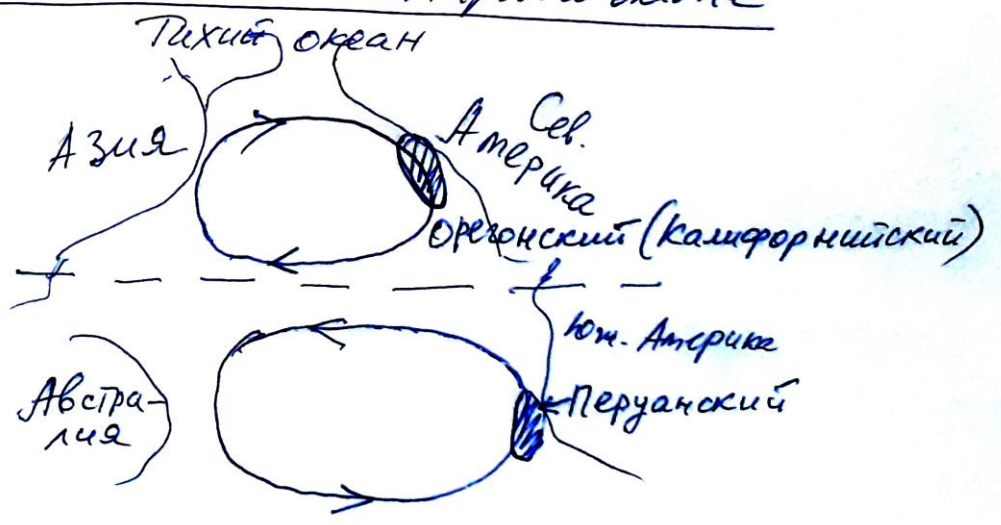 Тихий океан
Азия
Сев.
Америка
Орегонский (Калифорнийский)
Юж. Америка
Перуанский
Австра-
лия